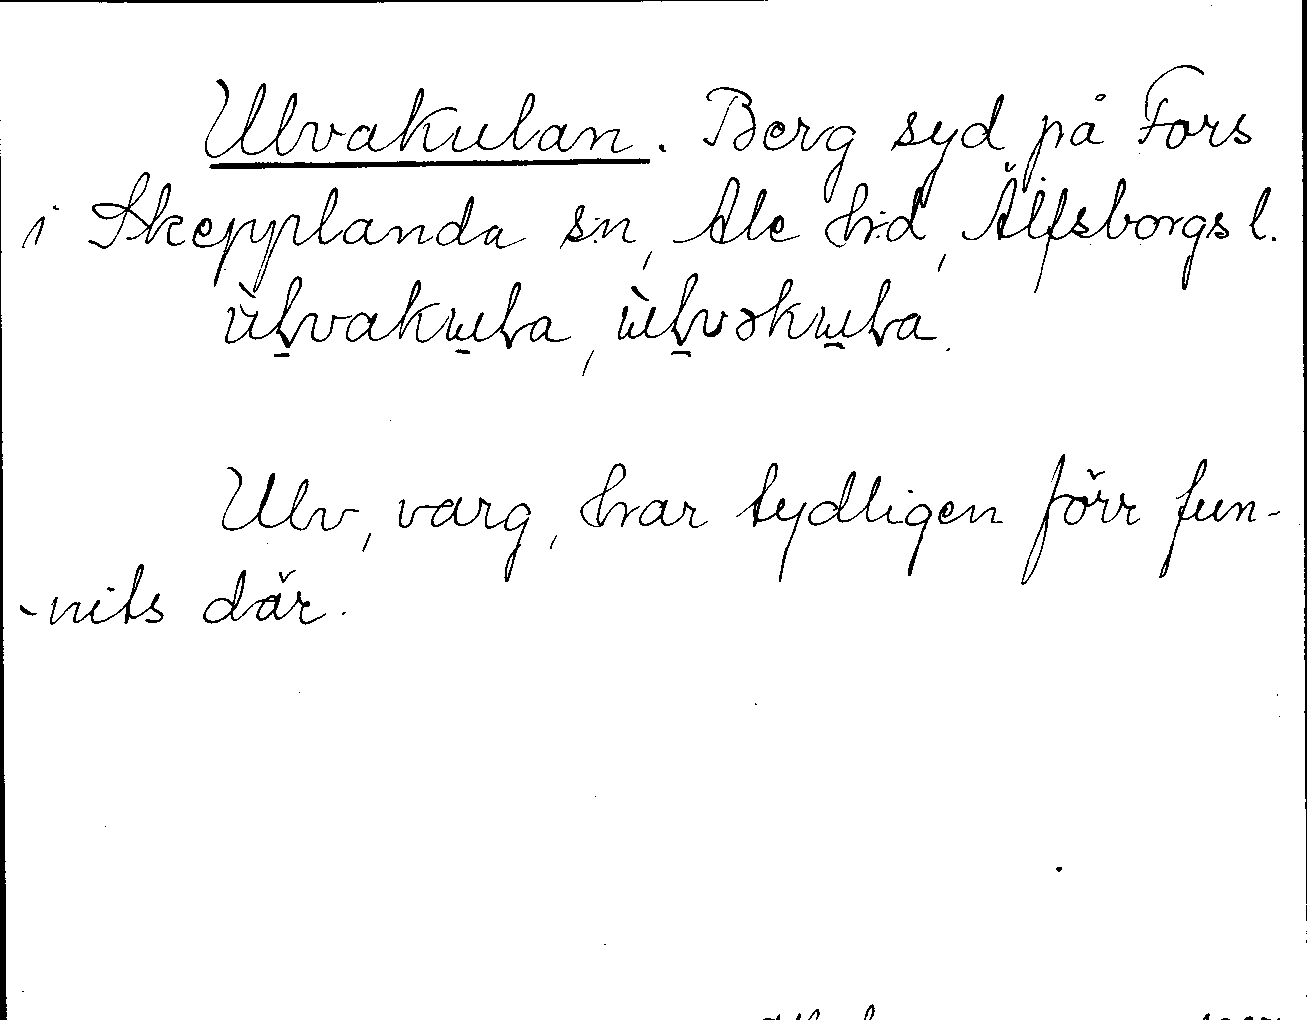 Ulvakulan. Berg syd på Fors
i Skepplanda sn, Ale hd, Älfsborgs l.
ùlvakula, ùlvəkula.
Ulv, varg, har tydligen förr fun-
-nits där.